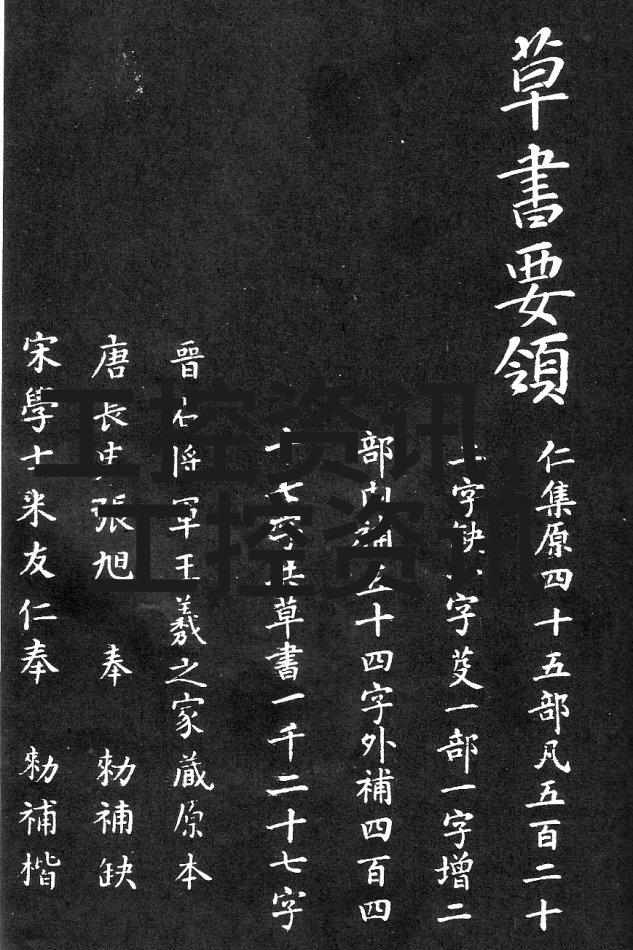 草書要領
仁集原四十五部凡五百二十
二字缺字芟一部一字增二
部内補五十四字外補四百四
十七字共草書一千二十七字
晉右將軍王羲之家藏原本
唐長史張旭 奉 勑補缺
宋學士米友仁奉 勑補楷
工控资讯
工控资讯